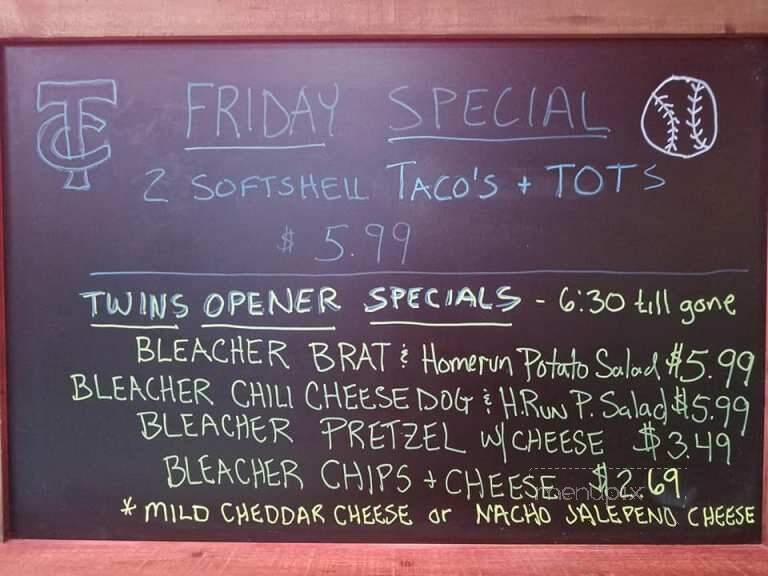 TC
FRIDAY SPECIAL
2 SOFTSHELL TACO'S + TOTS
$ 5.99
TWINS OPENER SPECIALS - 6:30 till gone
BLEACHER BRAT & Homerun Potato Salad $5.99
BLEACHER CHILI CHEESE DOG & H.RUN P. Salad $5.99
BLEACHER PRETZEL W/ CHEESE $3.49
BLEACHER CHIPS + CHEESE $2.69
menupix
* MILD CHEDDAR CHEESE or NACHO JALEPENO CHEESE